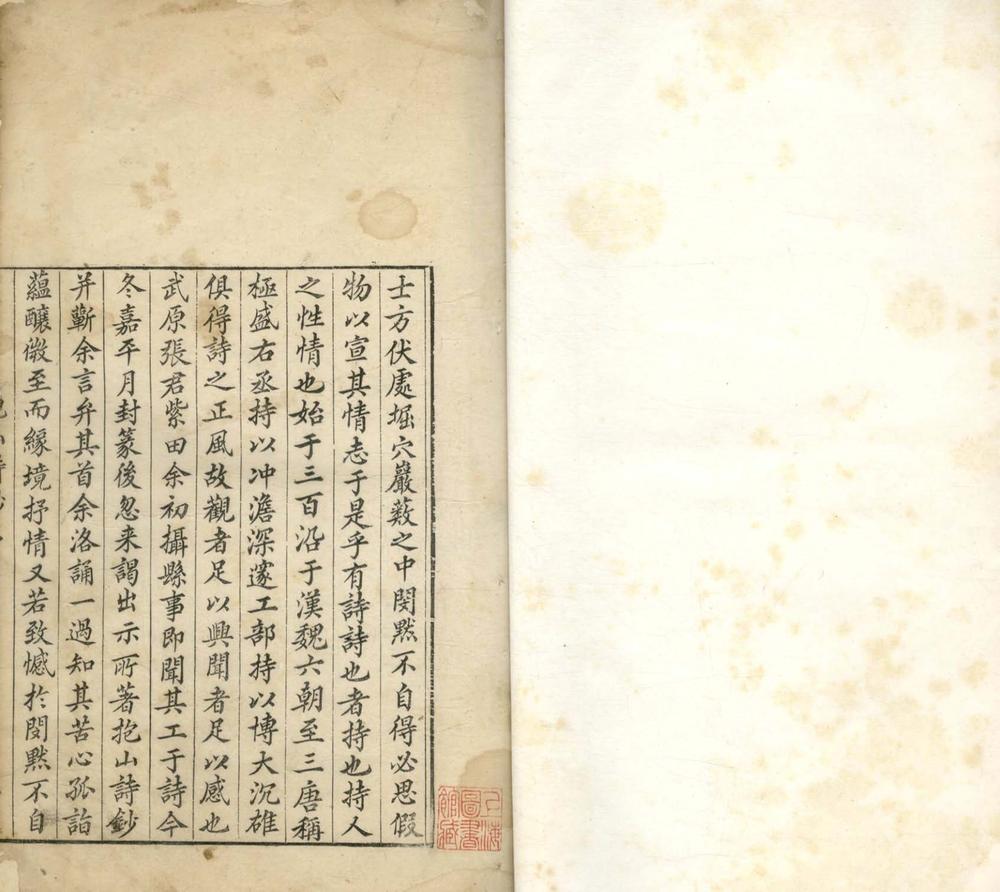 士方伏處堀穴巖薮之中閔默不自得必思假
物以宣其情志于是乎有詩詩也者持也持人
之性情也始于三百沿于漢魏六朝至三唐稱
極盛右丞持以冲澹深邃工部持以博大沉雄
俱得詩之正風故觀者足以興聞者足以感也
武原張君紫田余初攝縣事即聞其工于詩今
冬嘉平月封篆後忽来謁出示所著抱山詩鈔
并蘄余言弁其首余洛誦一過知其苦心孤詣
蘊釀微至而緣境抒情又若致憾於閔默不自
上海
圖書
館藏